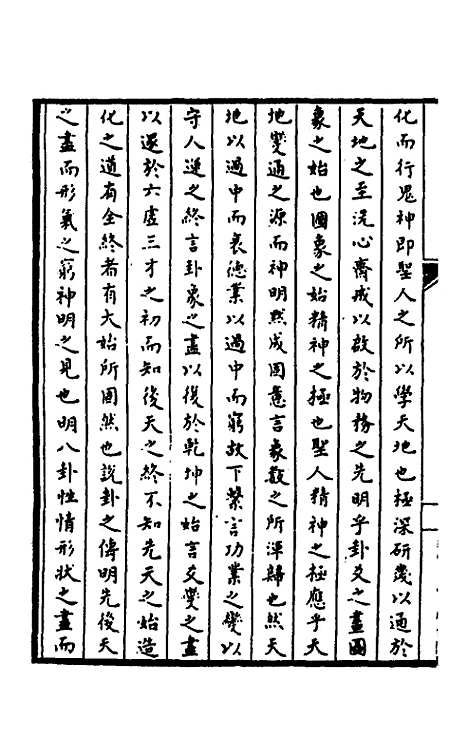 化而行鬼神即聖人之所以學天地也極深研幾以通於
天地之至洗心齋戒以啟於物務之先明乎卦爻之畫圖
象之始也圖象之始精神之極也聖人精神之極應乎天
地變通之源而神明黙成圖意言象數之所渾歸也然天
地以過中而衰德業以過中而窮故下繫言功業之變以
守人道之終言卦象之盡以復於乾坤之始言爻變之盡
以遂於六虛三才之初而知後天之終不知先天之始造
化之道有全終者有大始所固然也說卦之傳明先後天
之畫而形氣之窮神明之見也明八卦性情形狀之盡而